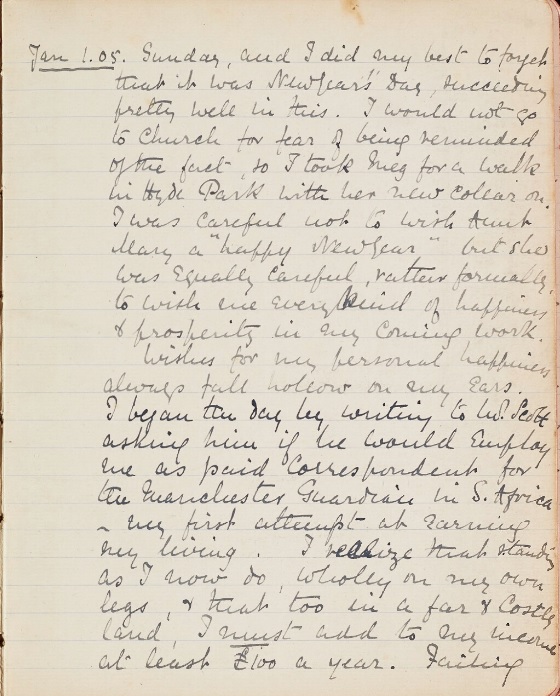 Jan 1. 05. Sunday, and I did my best to forget
that it was New Year's Day, succeeding
pretty well in this. I would not go
to Church for fear of being reminded
of the fact, so I took Meg for a walk
in Hyde Park with her new collar on.
I was careful not to wish Aunt
Mary a "happy New Year" but she
was equally careful, rather formally,
to wish me every kind of happiness
& prosperity in my coming work.
Wishes for my personal happiness
always fall hollow on my ears.
I began the day by writing to Mr. Scott
asking him if he would employ
me as paid Correspondent for
the Manchester Guardian in S. Africa
- my first attempt at earning
my living. I realize that standing
as I now do, wholly on my own
legs, & that too in a far & costly
land, I must add to my income
at least £100 a year. Failing